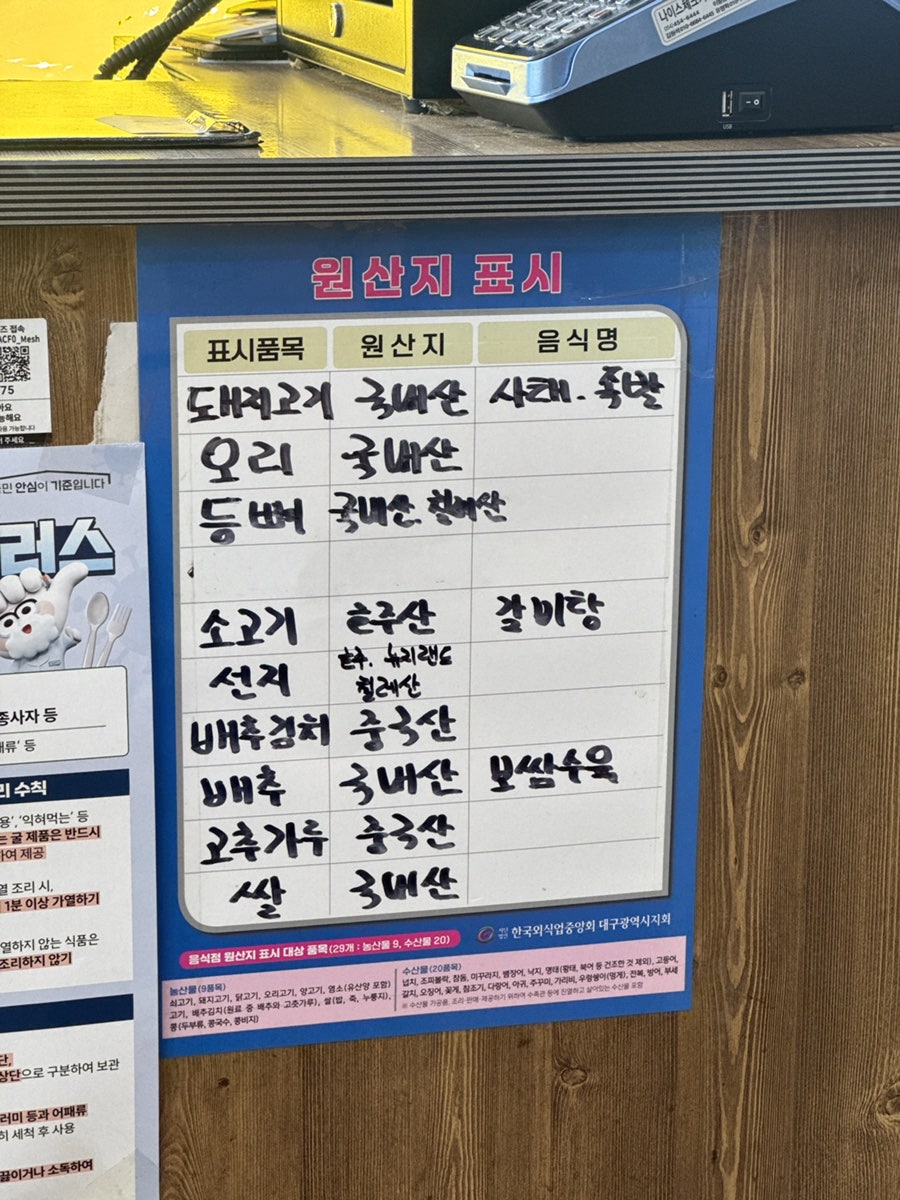 나이스체크
USB
원산지 표시
표시품목 원산지 음식명
돼지고기 국내산 사태. 족발
오리 국내산
등뼈 국내산. 칠레산
소고기 호주산 갈비탕
선지 호주. 뉴지랜드
칠레산
배추김치 중국산
배추 국내산 보쌈수육
고추가루 중국산
쌀 국내산
사단법인 한국외식업중앙회 대구광역시지회
음식점 원산지 표시 대상 품목(29개 : 농산물 9, 수산물 20)
농산물(9품목)
쇠고기, 돼지고기, 닭고기, 오리고기, 양고기, 염소(유산양 포함)
고기, 배추김치(원료 중 배추와 고춧가루), 쌀(밥, 죽, 누룽지),
콩(두부류, 콩국수, 콩비지)
수산물(20품목)
넙치, 조피볼락, 참돔, 미꾸라지, 뱀장어, 낙지, 명태(황태, 북어 등 건조한 것 제외), 고등어,
갈치, 오징어, 꽃게, 참조기, 다랑어, 아귀, 주꾸미, 가리비, 우렁쉥이(멍게), 전복, 방어, 부세
※ 수산물 가공품, 조리·판매·제공하기 위하여 수족관 등에 진열하고 살아있는 수산물 포함
즈 접속
ACF0_Mesh
75
주세요
안심이 기준입니다
러스
종사자 등
패류' 등
리 수칙
용', '익혀먹는' 등
는 굴 제품은 반드시
하여 제공
열 조리 시,
1분 이상 가열하기
열하지 않는 식품은
조리하지 않기
단,
상단으로 구분하여 보관
러미 등과 어패류
히 세척 후 사용
끓이거나 소독하여